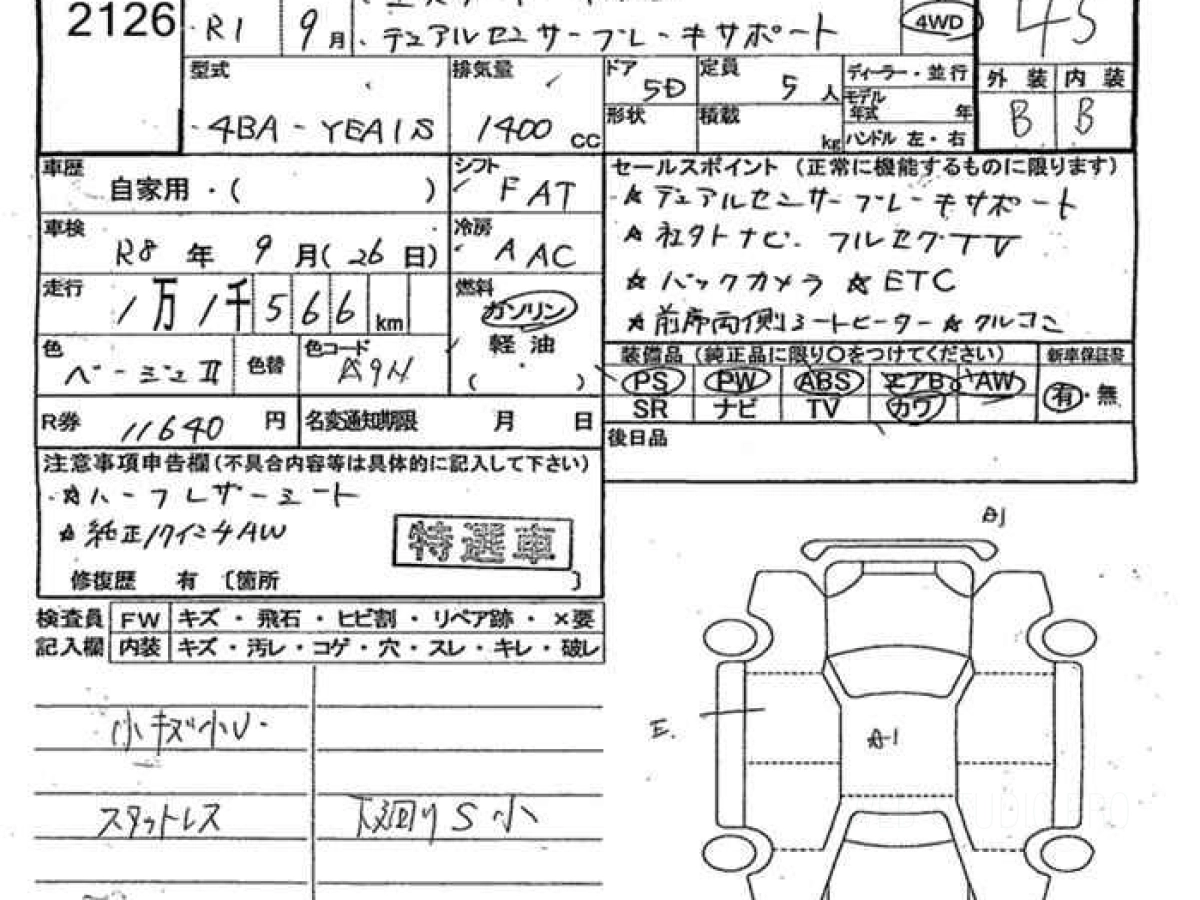 2126
R1 9月 ・デュアルセンサーブレーキサポート 4WD 45
型式 排気量 ドア 5D 定員 5人 ディーラー・並行 外装 内装
4BA-YEA1S 1400cc 形状 積載 kg モデル年式 年 B B
ハンドル 左・右
車歴 自家用・( )
シフト FAT
車検 R8年 9月(26日)
冷房 AAC
走行 1万1千566km
燃料 ガソリン
軽油
( )
色 ベージュII 色替 色コード A9H
R券 11640円 名変通知期限 月 日
セールスポイント (正常に機能するものに限ります)
☆デュアルセンサーブレーキサポート
☆社外ナビ. フルセグTV
☆バックカメラ ☆ETC
☆前席両側シートヒーター ☆クルコン
装備品 (純正品に限り〇をつけてください) 新車保証書
PS PW ABS エアB AW 有・無
SR ナビ TV カワ
後日品
注意事項申告欄(不具合内容等は具体的に記入して下さい)
・☆ハーフレザーシート
☆純正17インチAW
特選車
修復歴 有 〔箇所 〕
検査員 FW キズ・飛石・ヒビ割・リペア跡・×要
記入欄 内装 キズ・汚レ・コゲ・穴・スレ・キレ・破レ
小キズ小U・
スタットレス 下廻りS小
A1
E.
A-1